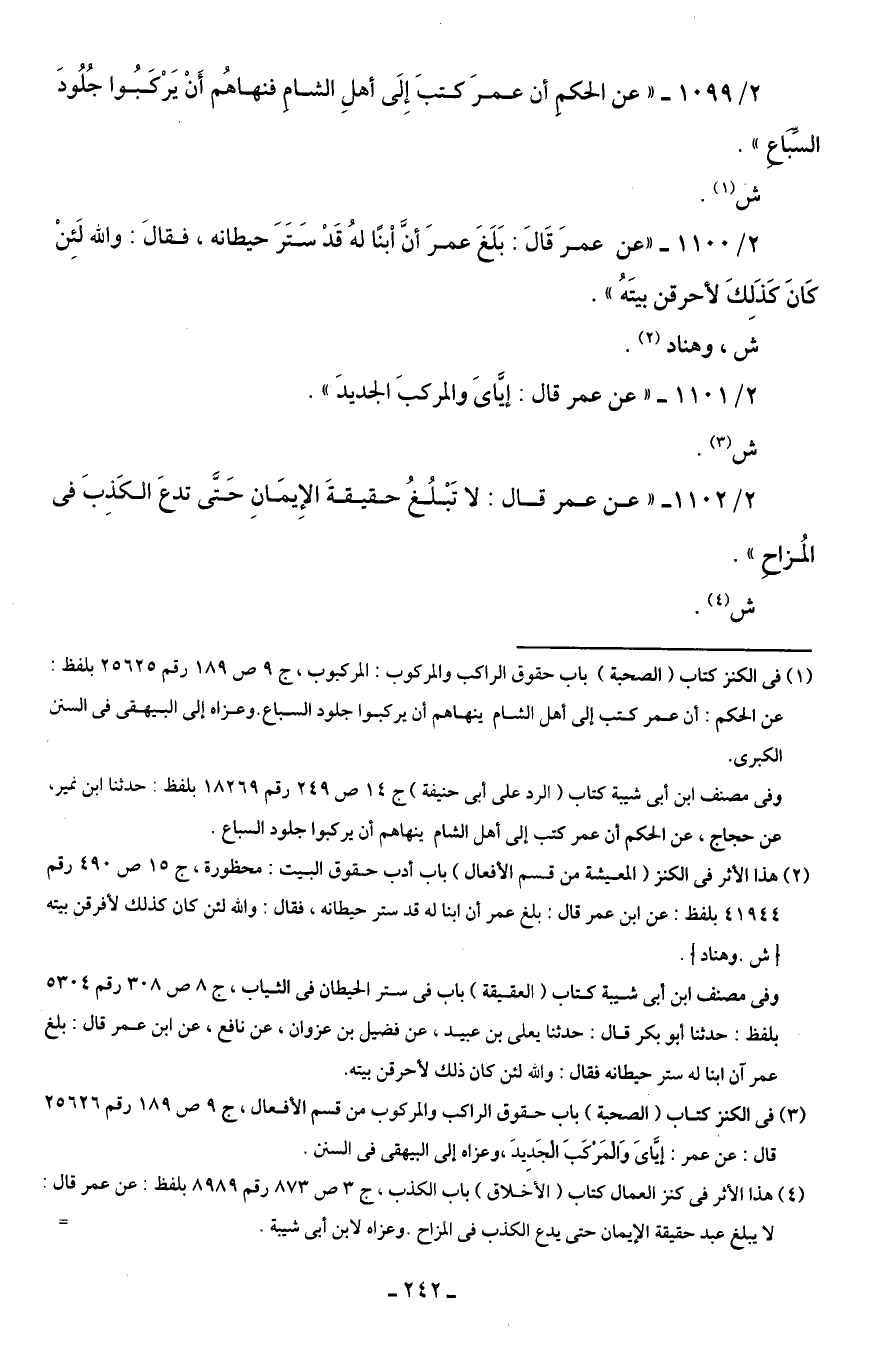 ٢/ ١٠٩٩ ـ « عن الحكمِ أن عـمـرَ كـتبَ إِلَى أهلِ الشامِ فنهـاهُم أَنْ يَرْكَـبُـوا جُلُودَ
السِّبَاعِ » .
ش(١) .
٢/ ١١٠٠ ـ «عن عمرَ قَالَ : بَلَغَ عمـرَ أنَّ أبنًا لهُ قَدْ سَتَرَ حيطانه ، فـقالَ : والله لَئِنْ
كَانَ كَذَلِكَ لأحرقن بيتَهُ » .
ش ، وهناد (٢) .
٢/ ١١٠١ ـ « عن عمر قال : إيَّاىَ والمركبَ الجديدَ » .
ش(٣) .
٢/ ١١٠٢ـ « عـن عـمر قـال : لا تَبْلُـغُ حـقيـقـةَ الإِيمَـانِ حَـتَّى تدعَ الـكَذِبَ فى
المُـزاحِ » .
ش(٤) .
(١) فى الكنز كتاب ( الصحبة ) باب حقوق الراكب والمركوب : المركبوب ، ج ٩ ص ١٨٩ رقم ٢٥٦٢٥ بلفظ :
عن الحكم : أن عمـر كـتب إلى أهل الشـام ينهـاهم أن يركبـوا جلود السـباع.وعـزاه إلى البيهـقى فى السنن
الكبرى.
وفى مصنف ابن أبى شيبة كتاب ( الرد على أبى حنيفة ) ج ١٤ ص ٢٤٩ رقم ١٨٢٦٩ بلفظ : حدثنا ابن نمير،
عن حجاج ، عن الحكم أن عمر كتب إلى أهل الشام ينهاهم أن يركبوا جلود السباع .
(٢) هذا الأثر فى الكنز ( المعيشة من قسم الأفعال ) باب أدب حـقوق البيت : محظورة ، ج ١٥ ص ٤٩٠ رقم
٤١٩٤٤ بلفظ : عن ابن عمر قال : بلغ عمر أن ابنا له قد ستر حيطانه ، فقال : والله لئن كان كذلك لأفرقن بيته
{ ش .وهناد } .
وفى مصنف ابن أبى شـيبة كـتاب ( العقيقة ) باب فى ستر الحيطان فى الثياب ، ج ٨ ص ٣٠٨ رقم ٥٣٠٤
بلفظ : حدثنا أبو بكر قـال : حدثنا يعلى بن عبيـد ، عن فضيل بن عزوان ، عن نافع ، عن ابن عـمر قال : بلغ
عمر آن ابنا له ستر حيطانه فقال : والله لئن كان ذلك لأحرقن بيته.
(٣) فى الكنز كتـاب ( الصحبة ) باب حـقوق الراكب والمركوب من قسم الأفـعال ، ج ٩ ص ١٨٩ رقم ٢٥٦٢٦
قال : عن عمر : إِيَّاىَ وَالْمَرْكَبَ الْجَدِيدَ ،وعزاه إلى البيهقى فى السنن .
(٤) هذا الأثر فى كنز العمال كتاب ( الأخلاق ) باب الكذب ، ج ٣ ص ٨٧٣ رقم ٨٩٨٩ بلفظ : عن عمر قال :
لا يبلغ عبد حقيقة الإيمان حتى يدع الكذب فى المزاح .وعزاه لابن أبى شيبة . =
ـ ٢٤٢ ـ